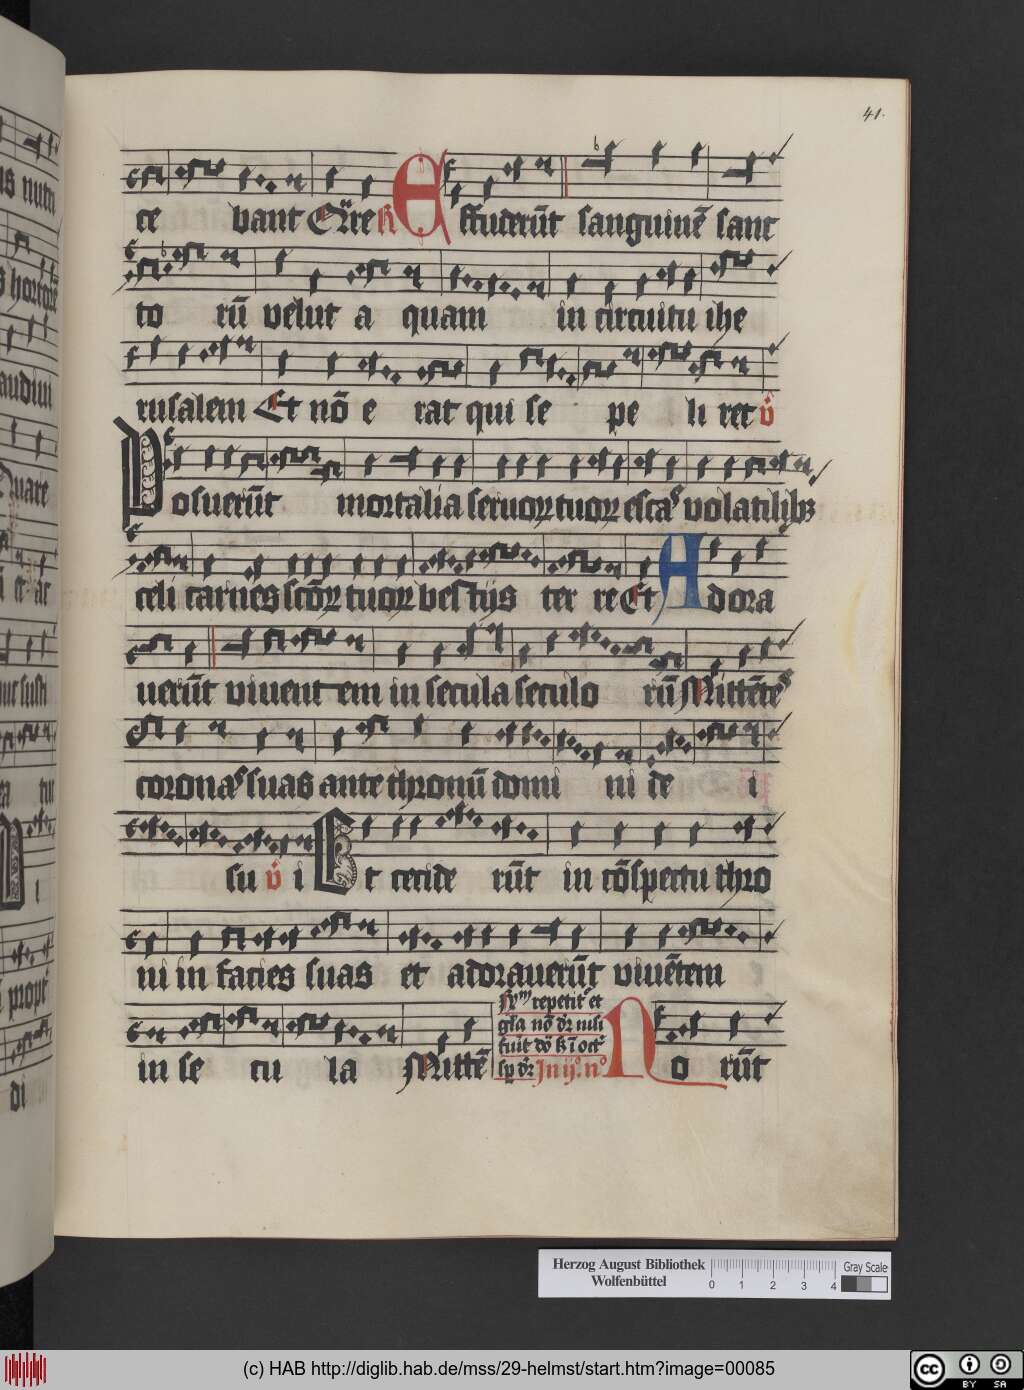 41.
ce vant Q̄re R̄ Effuderūt sanguinē sanc
to rū velut a quam in circuitu ihe
rusalem Et nō e rat qui se pe li ret v̄
Posuerūt mortalia seruoꝝ tuoꝝ escas volatilibꝫ
celi carnes sctōꝝ tuoꝝ bestijs ter re Et Adora
uerūt viuent em in secula seculo rū Mittētes
coronas suas ante thronū domi ni de i
su v̄ i Et cecide rūt in cōspectu thro
ni in facies suas et adorauerūt viuētem
in se cu la Mittē
repetitr et
gl̄a nō dr̄ nisi
fuit dō in oct
Jn ijo. no
No rūt
is nutu
audiui
Quare
susti
ea tu
i
propt
di
Herzog August Bibliothek
Wolfenbüttel
0 1 2 3 4
Gray Scale
(c) HAB http://diglib.hab.de/mss/29-helmst/start.htm?image=00085
cc BY SA